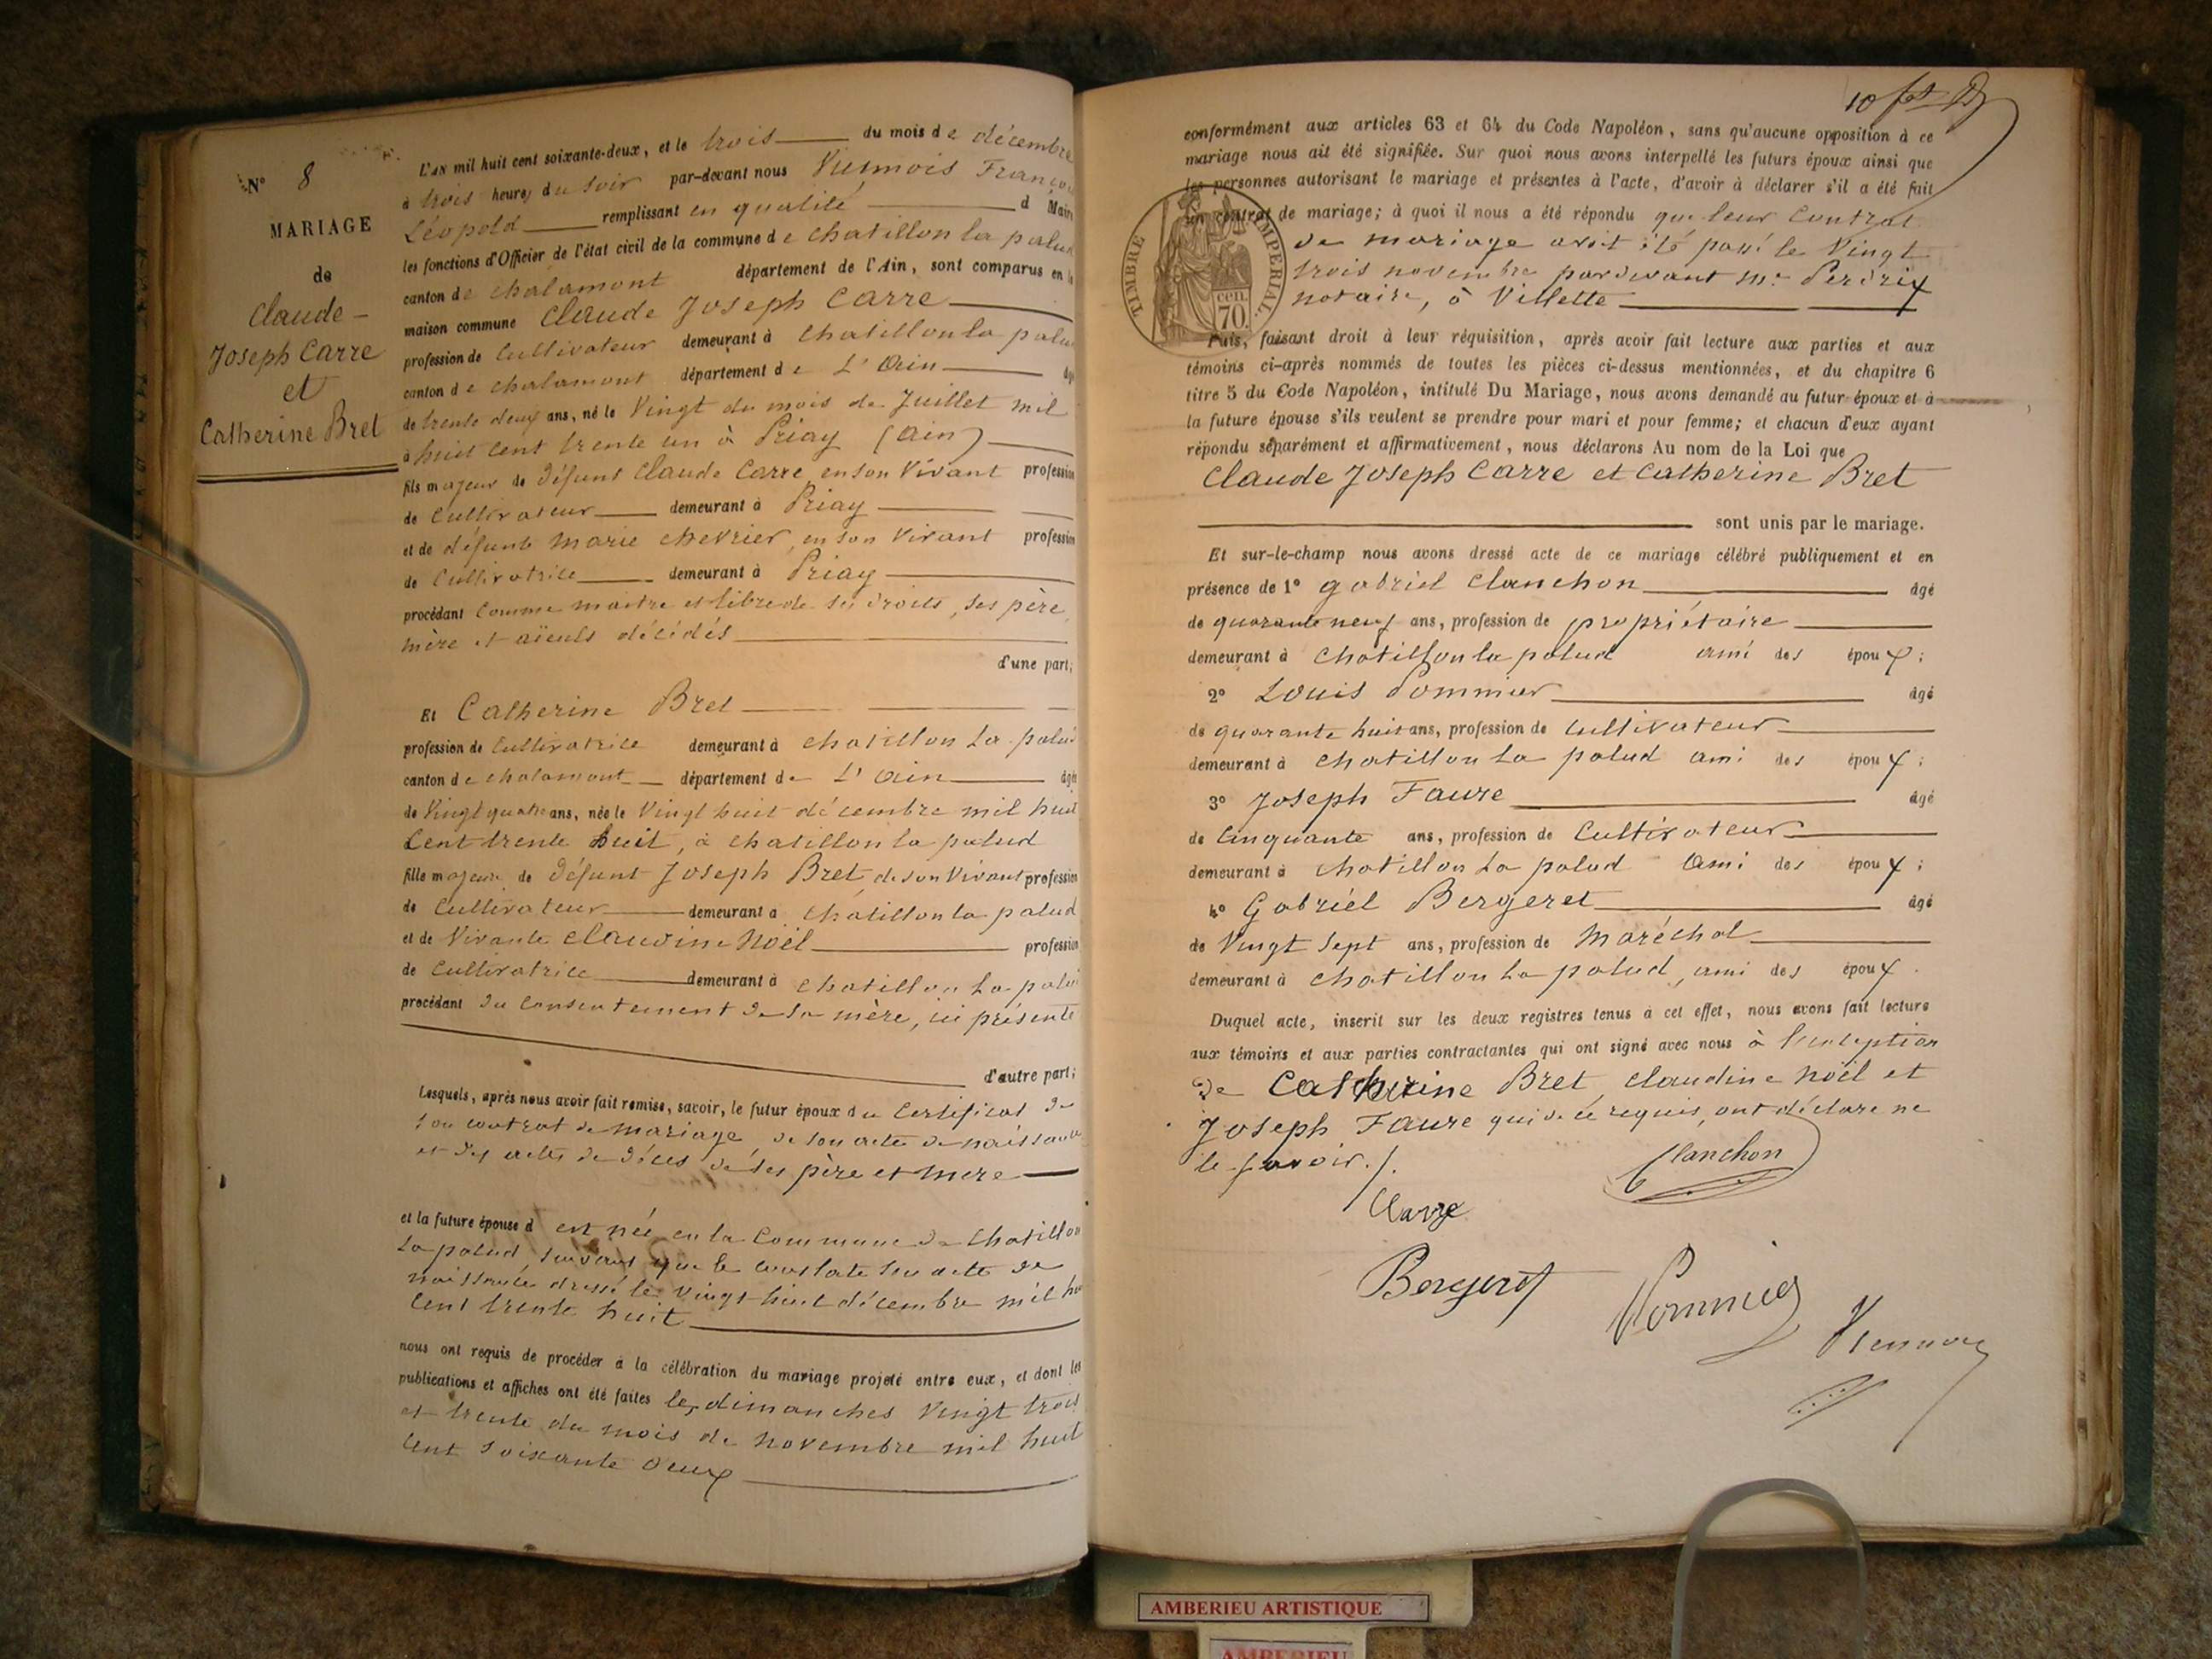 N° 8
MARIAGE
de
Claude-
Joseph Carre
et
Catherine Bret
L'AN mil huit cent soixante-deux, et le trois du mois de décembre
à trois heures du soir par-devant nous Viennois François
Léopold remplissant en qualité d Maire
les fonctions d'Officier de l'état civil de la commune de chatillon la palud
canton de chalamont département de l'Ain, sont comparus en la
maison commune Claude Joseph Carre
profession de Cultivateur demeurant à chatillon la palud
canton de chalamont département de L'Ain âgé
de trente deux ans, né le Vingt du mois de Juillet mil
à huit cent trente un à Priay (Ain)
fils majeur de défunt Claude Carre, en son Vivant profession
de Cultivateur demeurant à Priay
et de défunte Marie chevrier, en son Vivant profession
de Cultivatrice demeurant à Priay
procédant comme maitre et libre de ses droits, ses père,
mère et aïeuls décédés
d'une part;
Et Catherine Bret
profession de Cultivatrice demeurant à chatillon La palud
canton de chalamont département de L'Ain âgée
de Vingt quatre ans, née le Vingt huit décembre mil huit
Cent trente huit, à chatillon la palud
fille majeure de Défunt Joseph Bret, de son Vivant profession
de Cultivateur demeurant à chatillon la palud
et de Vivante Claudine Noël profession
de Cultivatrice demeurant à chatillon La palud
procédant du consentement de sa mère, ici présente
d'autre part;
Lesquels, après nous avoir fait remise, savoir, le futur époux du Certificat de
son contrat de mariage, de son acte de naissance
et des actes de décès de ses père et mère
et la future épouse d est née en la Commune de Chatillon
La palud, suivant que le constate son acte de
naissance dressé le vingt-huit décembre mil huit
Cent trente huit
nous ont requis de procéder à la célébration du mariage projeté entre eux, et dont les
publications et affiches ont été faites les dimanches Vingt trois
et trente du mois de novembre mil huit
Cent soixante deux
conformément aux articles 63 et 64 du Code Napoléon, sans qu'aucune opposition à ce
mariage nous ait été signifiée. Sur quoi nous avons interpellé les futurs époux ainsi que
les personnes autorisant le mariage et présentes à l'acte, d'avoir à déclarer s'il a été fait
un contrat de mariage; à quoi il nous a été répondu que leur Contrat
de mariage avait été passé le Vingt
trois novembre pardevant Me Perdrix
notaire, à Villette
TIMBRE IMPERIAL.
70 cen.
Puis, faisant droit à leur réquisition, après avoir fait lecture aux parties et aux
témoins ci-après nommés de toutes les pièces ci-dessus mentionnées, et du chapitre 6
titre 5 du Code Napoléon, intitulé Du Mariage, nous avons demandé au futur époux et à
la future épouse s'ils veulent se prendre pour mari et pour femme; et chacun d'eux ayant
répondu séparément et affirmativement, nous déclarons Au nom de la Loi que
Claude Joseph Carre et Catherine Bret
sont unis par le mariage.
Et sur-le-champ nous avons dressé acte de ce mariage célébré publiquement et en
présence de 1° gabriel Clanchon âgé
de quarante neuf ans, profession de propriétaire
demeurant à Chatillon la palud ami des époux;
2° Louis Pommier âgé
de quarante huit ans, profession de Cultivateur
demeurant à chatillon La palud ami des époux;
3° Joseph Faure âgé
de Cinquante ans, profession de Cultivateur
demeurant à chatillon La palud Ami des époux;
4° Gabriël Bergeret âgé
de Vingt sept ans, profession de Maréchal
demeurant à chatillon La palud, ami des époux.
Duquel acte, inscrit sur les deux registres tenus à cet effet, nous avons fait lecture
aux témoins et aux parties contractantes qui ont signé avec nous à l'exception
de Catherine Bret, Claudine Noël et
Joseph Faure qui de ce requis, ont déclare ne
le savoir./.
Clanchon
Carre
Bergeret
Pommier
Viennois
AMBERIEU ARTISTIQUE
AMBERIEU